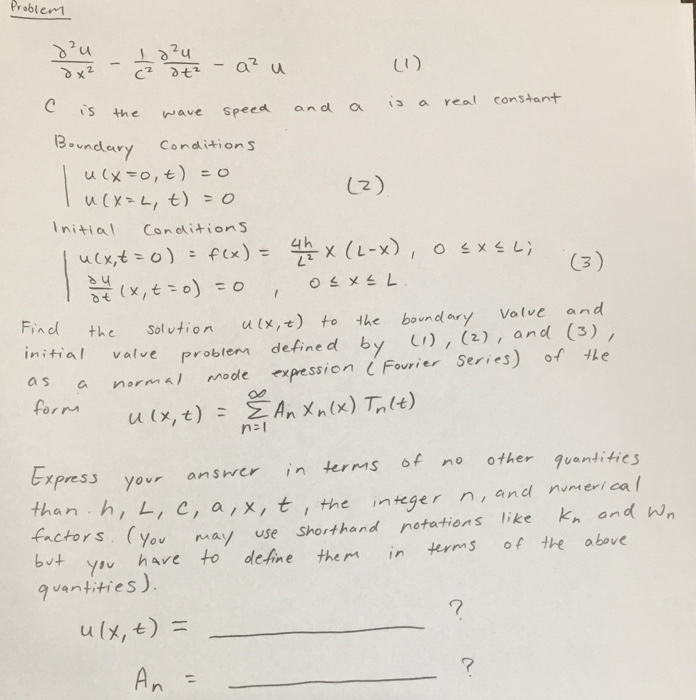 Problem
∂²u/∂x² - 1/c² ∂²u/∂t² - a² u (1)
C is the wave speed and a is a real constant
Boundary Conditions
u(x=0,t) = 0
u(x=L, t) = 0 (2)
Initial Conditions
u(x,t=0) = f(x) = 4h/L² x (L-x), 0 ≤ x ≤ L; (3)
∂u/∂t (x,t=0) = 0 , 0 ≤ x ≤ L.
Find the solution u(x,t) to the boundary value and
initial value problem defined by (1), (2), and (3),
as a normal mode expression (Fourier Series) of the
form u(x,t) = ∞ Σ n=1 An Xn(x) Tn(t)
Express your answer in terms of no other quantities
than h, L, C, a, x, t, the integer n, and numerical
factors. (You may use shorthand notations like Kn and Wn
but you have to define them in terms of the above
quantities).
u(x,t) = ________ ?
An = ________ ?